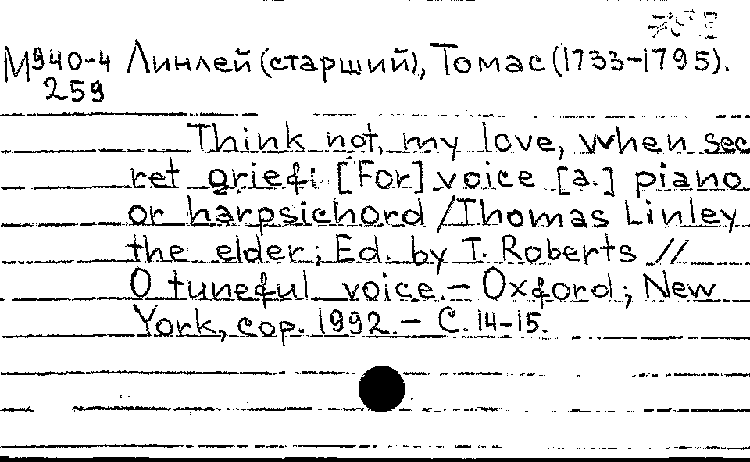 М940-4 Линлей (старший), Томас (1733-1795).
259
Think not, my love, when sec
ret grief: [For] voice [a.] piano
or harpsichord / Thomas Linley
the elder; Ed. by T. Roberts //
O tuneful voice. - Oxford; New
York, cop. 1992. - C. 14-15.